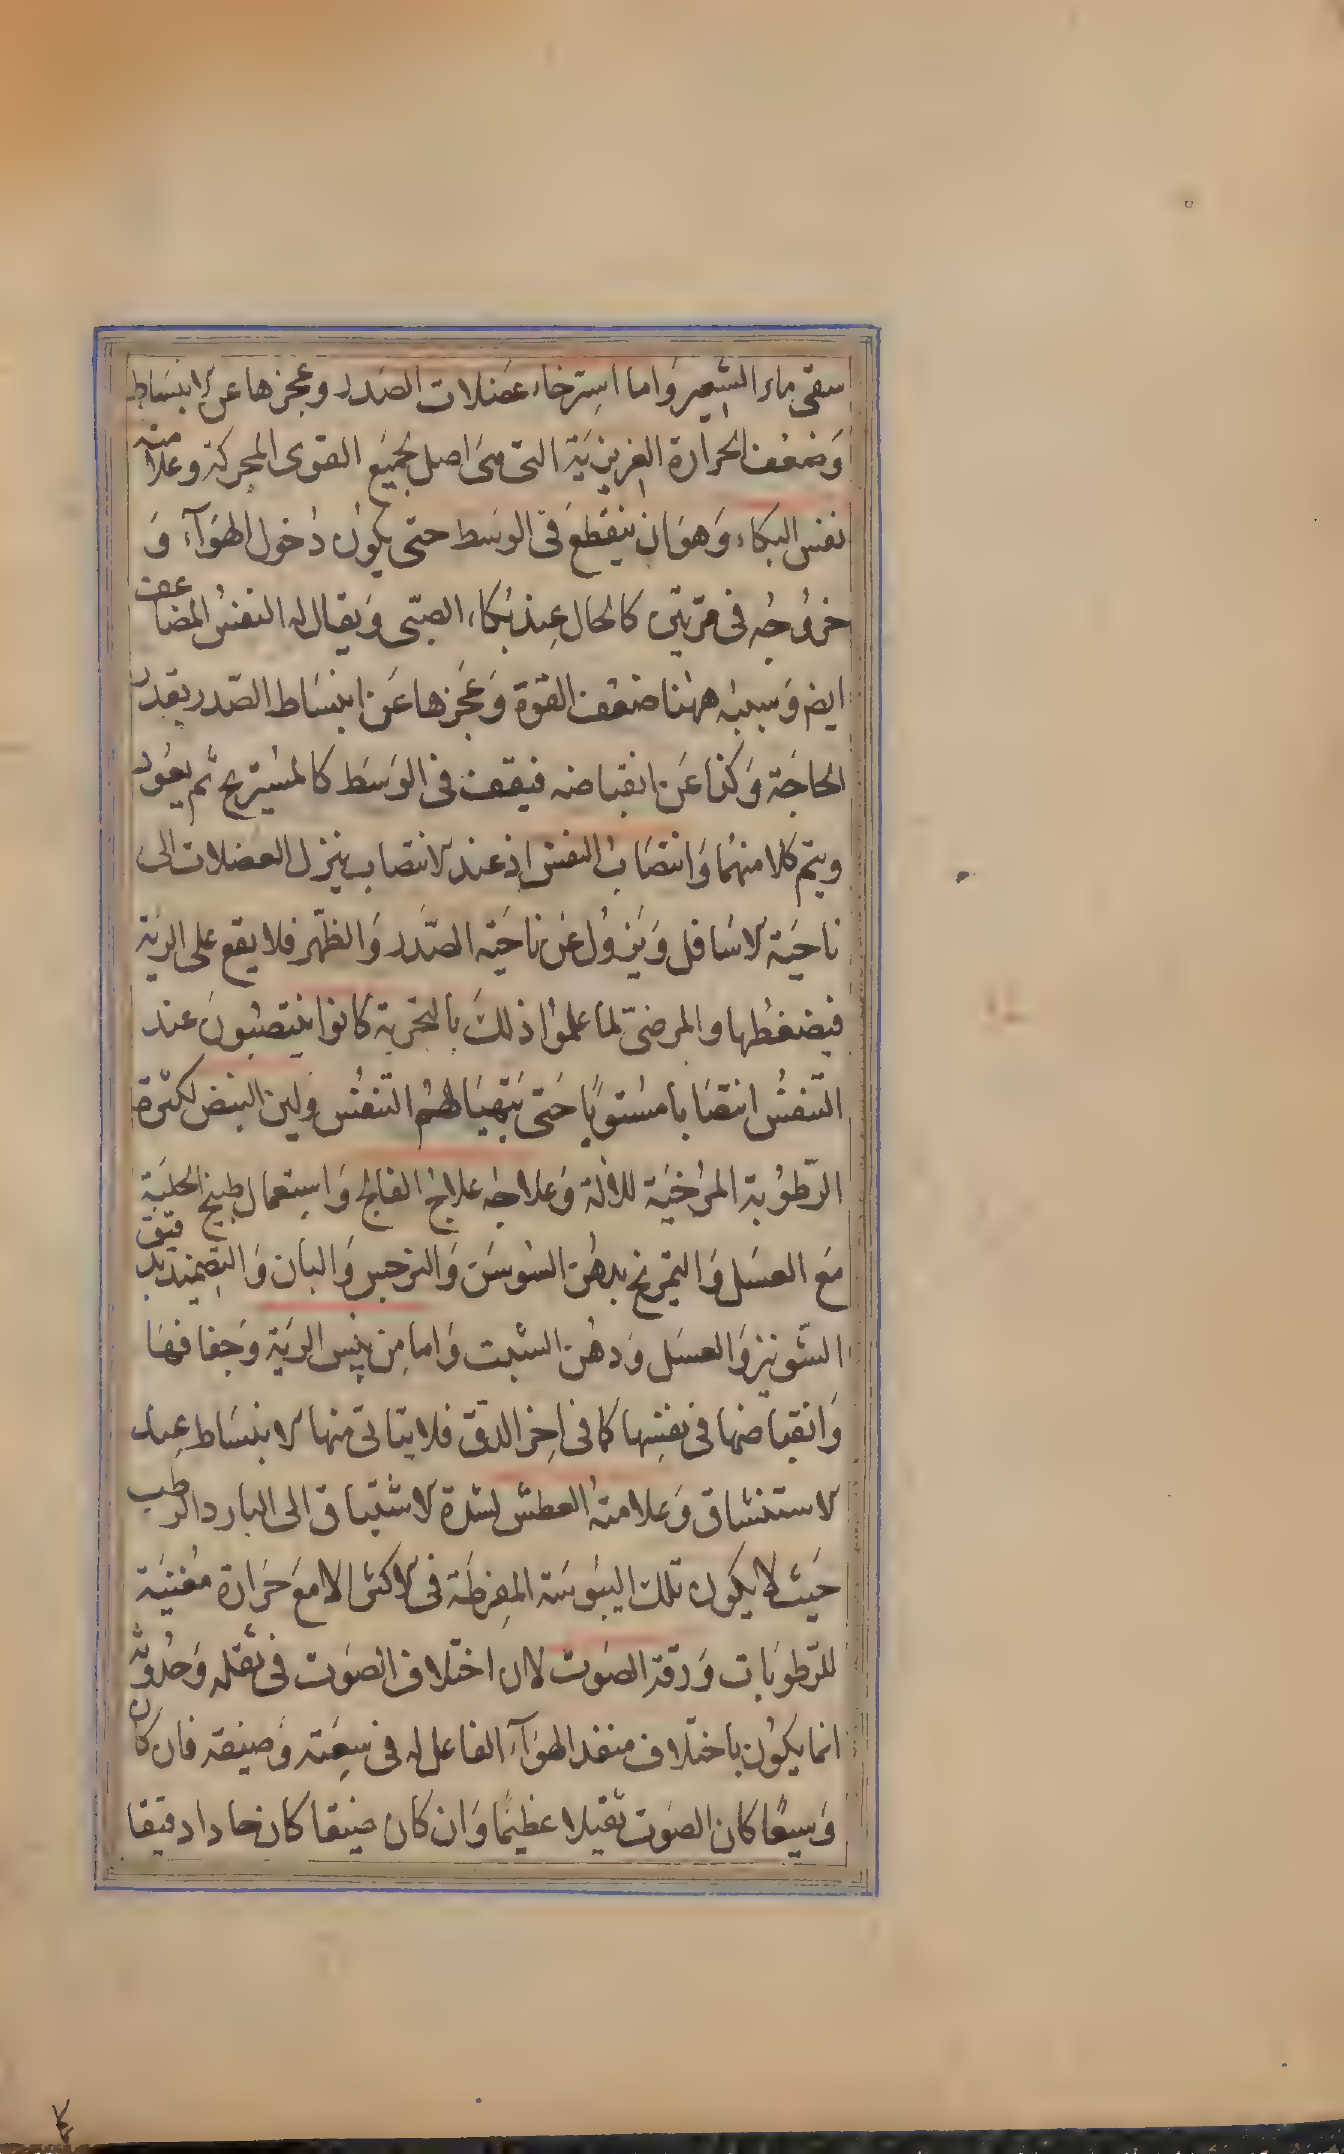 سقى ماء الشعير وَاما استرخاء عضلات الصَدر وعجزها عن الانبسَاط
وَضعف الحرارة الغريزيَة التى هى اصل لجميَع القوى المحركة وعلامته
نفس البكاء وَهوَان ينقطعَ فى الوسَط حتى يكون دخول الهوَآء وَ
خروُجُه فى مرّتين كالحال عند بُكاء الصبى وَيقال له النفسُ المضاعف
ايض وَسببه ههُنا ضعف القوة وَعجزها عَن انبسَاط الصَدر بقدر
الحاجَة وَكذا عَن انقباضه فيقف فى الوَسَط كالمسُتريح ثم يعَود
ويتم كلا منهمُا وَانتصَابُ النفس اذ عند الانتصاب ينزل العضلات الى
ناحيَة الاسَافل وَيَزولُ عَن ناحيَة الصَّدَر وَالظهر فلا يقع على الريَة
فيضغطُها والمرضىَ لما علموُا ذلكَ بالتجربة كانوا ينتصبُونَ عند
التنفسُ انتصَابا مسُتويًا حَتى يَتهيَا لهمُ التنفسُ وَلين النبض لكثرة
الرّطوُبة المرُخيَة للالة وَعلاجه علاجُ الفالج وَاستعمال طبيخ الحلبَة
مَع العسَل وَالتمريخ بدهُن السُوسَن وَالنرجس وَالبان وَالتضميد بدقيق
الشونيز وَالعسَل وَدهُن الشبت وَاما مِن يبس الريَة وَجفافهَا
وَانقباضها فى نفسِها كما فى اخر الدق فلا يتاتى منها الانبسَاط عند
الاستنشاق وَعلامتهُ العطش لشدة الاشتياق الى البارد الرطب
حيَث لا يكون تلك اليبوسَة المفرطَة فى الاكثر الا معَ حَرارة مفُنيَة
للرّطوبَات وَرقة الصَوت لان اختلاف الصَوت فى ثقله وَحدوثه
انما يكوُن باختلاف منفذ الهوَآء الفاعل له فى سِعَته وَضيقه فان كان
وَسيعًا كان الصَوت ثقيلا عظيمًا وَان كان ضيقا كان حادا دقيقا